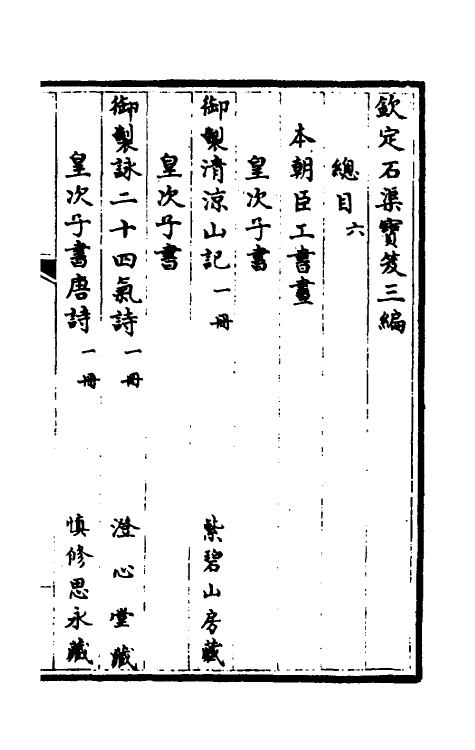 欽定石渠寶笈三編
總目六
本朝臣工書畫
皇次子書
御製清涼山記一冊 紫碧山房藏
皇次子書
御製詠二十四氣詩一冊 澄心堂藏
皇次子書唐詩一冊 慎修思永藏